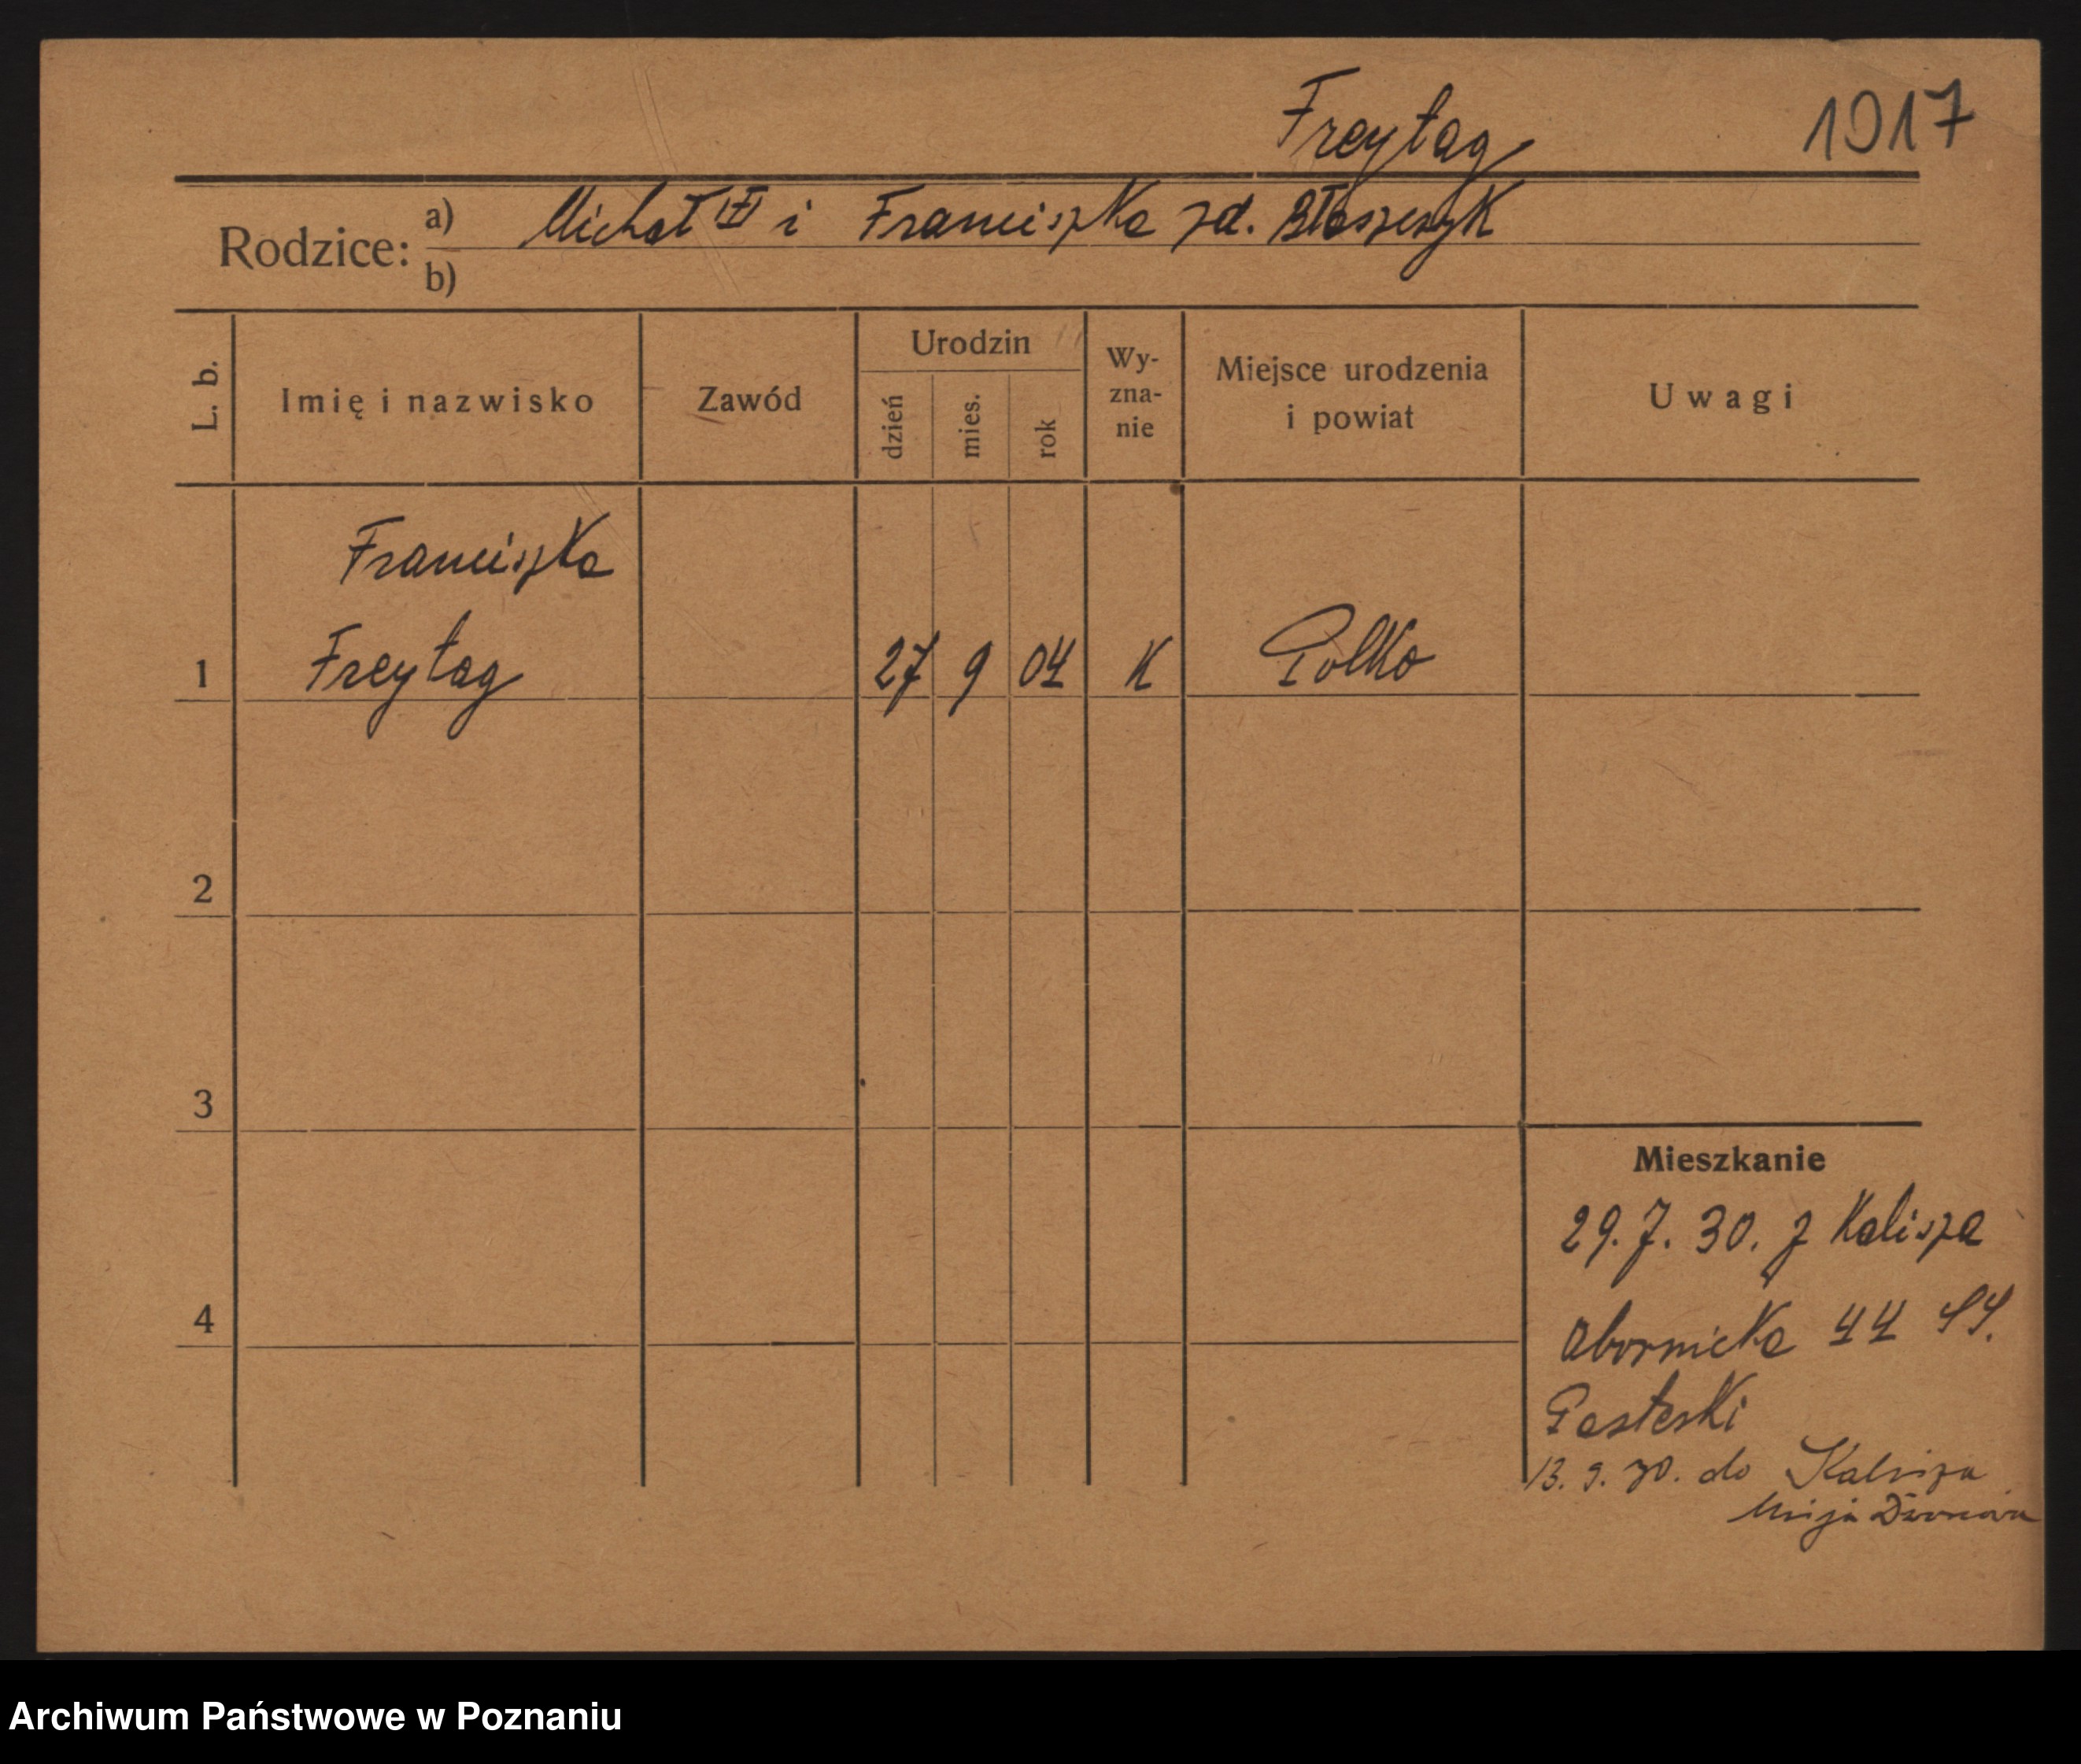 Freytag 1917
Rodzice: a) Michał i Franciszka zd. Błaszczyk
b)
L. b. Imię i nazwisko Zawód Urodzin dzień mies. rok Wyznanie Miejsce urodzenia i powiat Uwagi
Franciszka
1 Freytag 27 9 04 K Polko
2
3
Mieszkanie
29.7.30. z Kalisza
4
Obornicka 44
13.9.30. do Kalisza
Archiwum Państwowe w Poznaniu